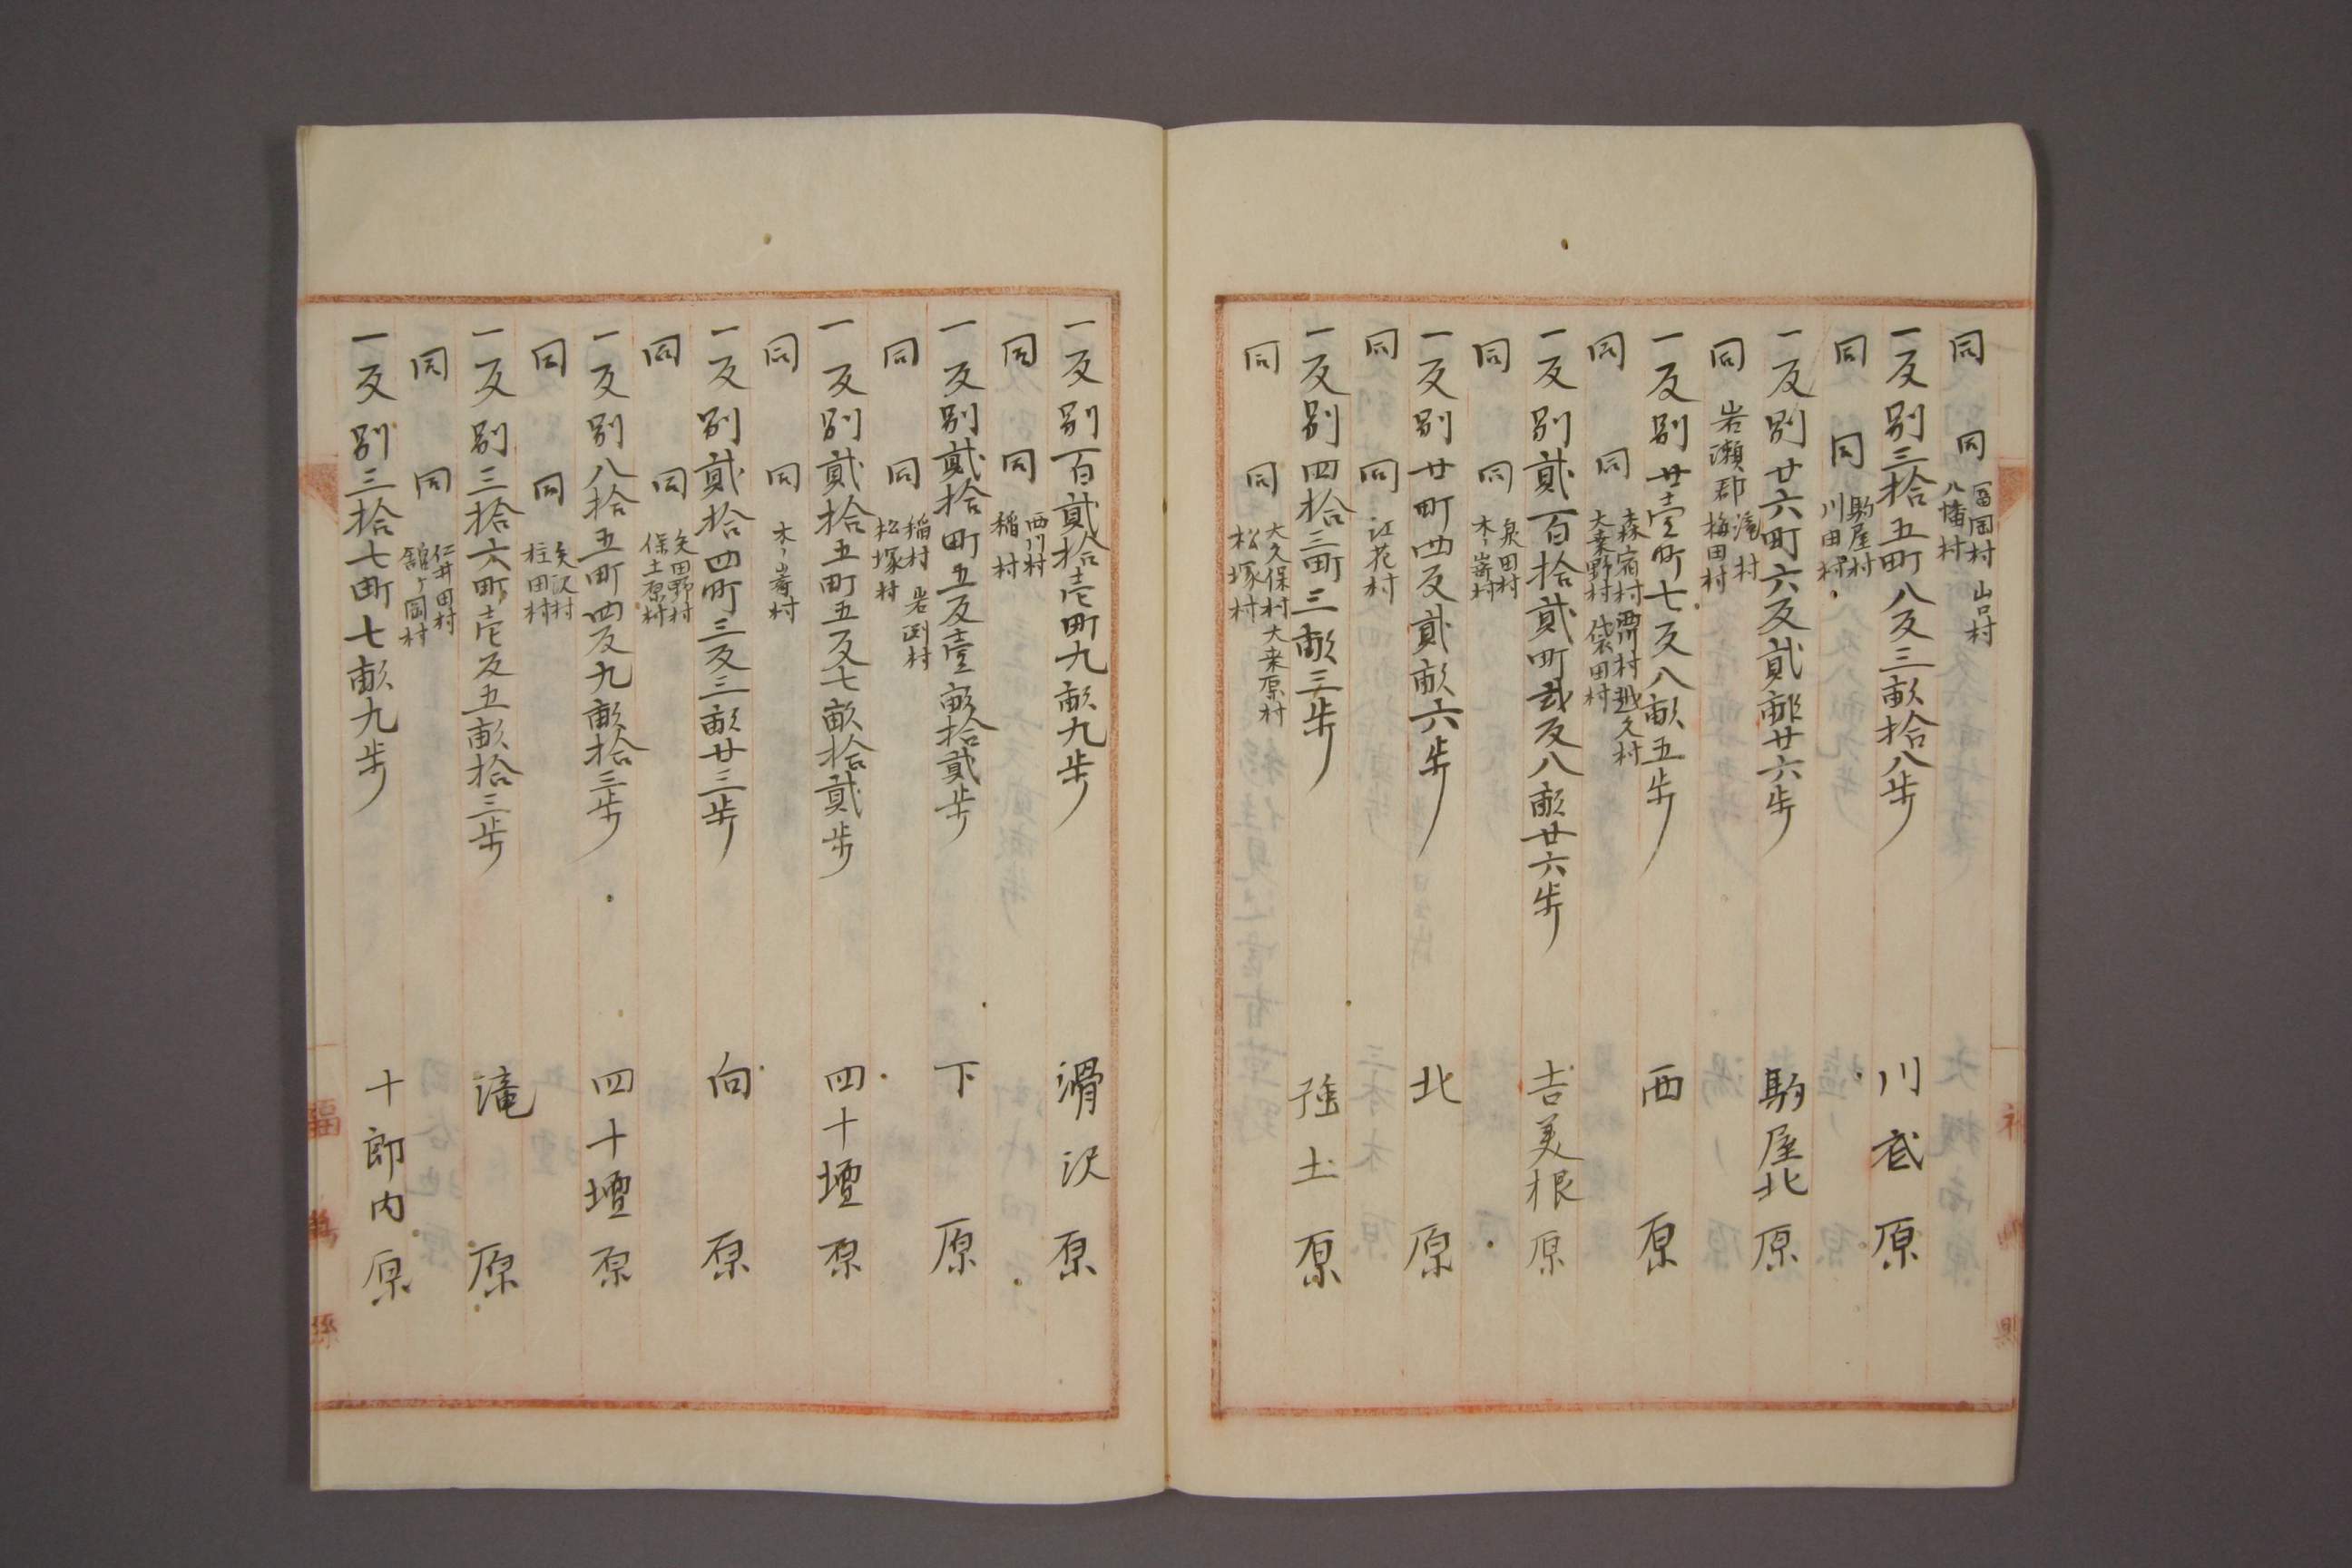 同 同 冨岡村 山口村
八幡村
一反別三拾五町八反三畝拾八歩 川底原
同 同 駒屋村
川田村
一反別廿六町六反貳畝廿六歩 駒屋北原
同 岩瀬郡 滝村
梅田村
一反別廿壱町七反八畝五歩 西原
同 同 森宿村 西川村 越久村
大桒野村 袋田村
一反別貳百拾貳町弐反八畝廿六歩 吉美根原
同 同 泉田村
木ノ崎村
一反別廿町四反貳畝六歩 北原
同 同 江花村
一反別四拾三町三畝三歩 強土原
同 同 大久保村 大来原村
松塚村
一反別百貳拾壱町九畝九歩 滑沢原
同 同 西川村
稲村
一反別貳拾町五反壱畝拾貳歩 下原
同 同 稲村 岩渕村
松塚村
一反別貳拾五町五反七畝拾貳歩 四十壇原
同 同 木ノ崎村
一反別貳拾四町三反三畝廿三歩 向原
同 同 矢田野村
保土原村
一反別八拾五町四反九畝拾三歩 四十壇原
同 同 矢沢村
柱田村
一反別三拾六町壱反五畝拾三歩 滝原
同 同 仁井田村
舘ヶ岡村
一反別三拾七町七畝九歩 十郎内原
福島縣